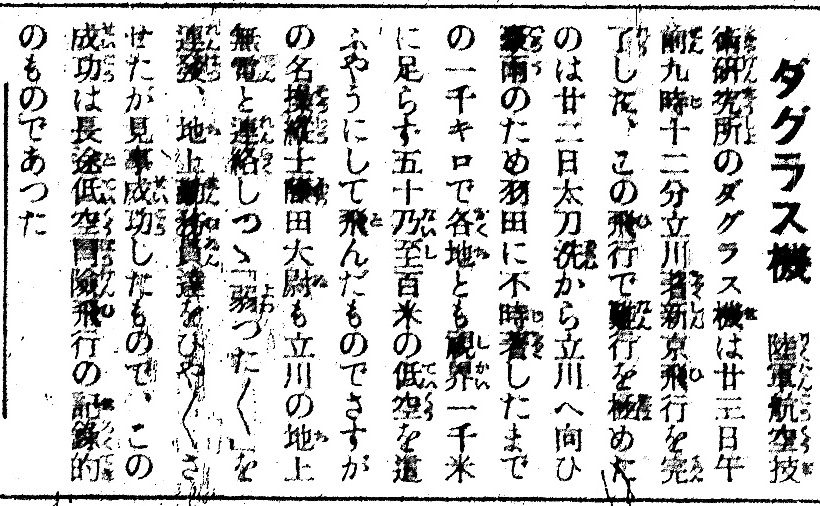 ダグラス機　陸軍航空技
術研究所のダグラス機は廿三日午
前九時十二分立川着新京飛行を完
了した、この飛行で難行を極めた
のは廿二日太刀洗から立川へ向ひ
豪雨のため羽田に不時着したまで
の一千キロで各地とも視界一千米
に足らず五十乃至百米の低空を這
ふやうにして飛んだものでさすが
の名操縦士藤田大尉も立川の地上
無電と連絡しつゝ「弱つた〱」を
連発、地上勤務員達をひや〱さ
せたが見事成功したもので、この
成功は長途低空冒険飛行の記録的
のものであつた